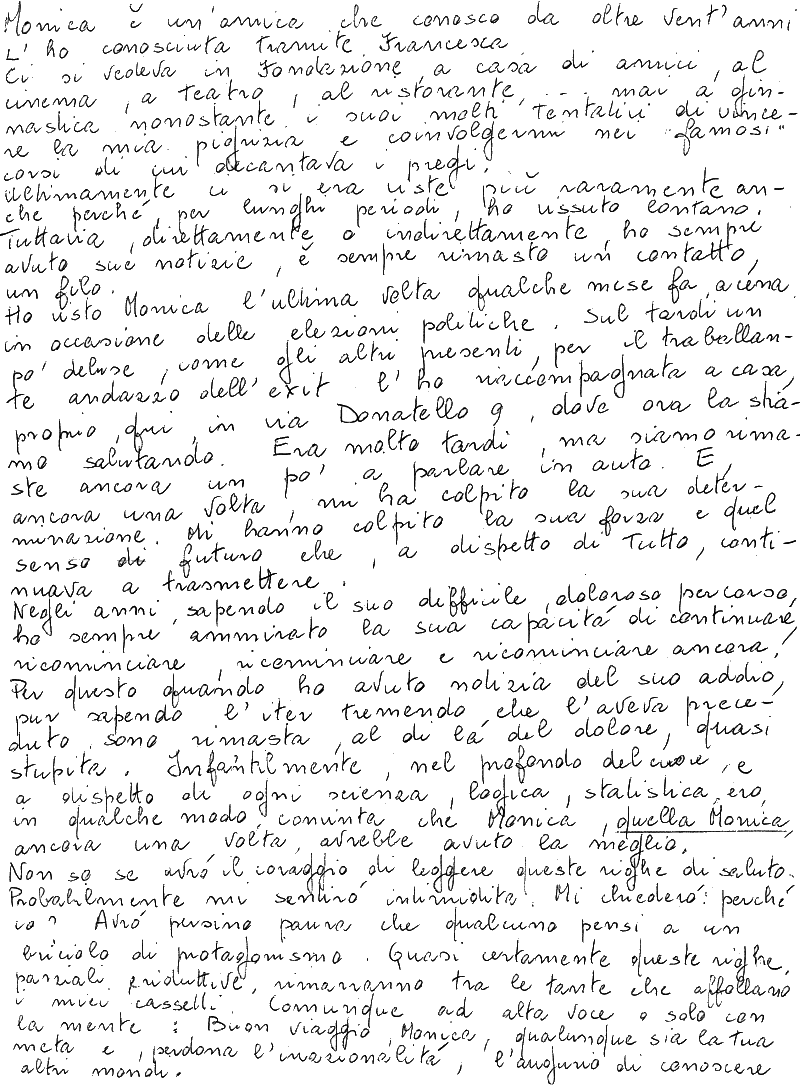 Monica è un'amica che conosco da oltre vent'anni
L'ho conosciuta tramite Francesca
Ci si vedeva in Fondazione, a casa di amici, al
cinema, a teatro, al ristorante, ... mai a gin-
nastica nonostante i suoi molti tentativi di vince-
re la mia pigrizia e coinvolgermi nei "famosi"
corsi di cui decantava i pregi.
Ultimamente ci si era viste più raramente an-
che perché, per lunghi periodi, ho vissuto lontano.
Tuttavia, direttamente o indirettamente, ho sempre
avuto sue notizie, è sempre rimasto un contatto,
un filo.
Ho visto Monica l'ultima volta qualche mese fa, a cena
in occasione delle elezioni politiche. Sul tardi un
po' deluse, come gli altri presenti, per il traballan-
te andazzo dell'exit l'ho riaccompagnata a casa,
proprio, qui, in via Donatello 9, dove ora la stia-
mo salutando. Era molto tardi, ma siamo rima-
ste ancora un po' a parlare in auto. E,
ancora una volta, mi ha colpito la sua deter-
minazione. Mi hanno colpito la sua forza e quel
senso di futuro che, a dispetto di tutto, conti-
nuava a trasmettere.
Negli anni, sapendo il suo difficile, doloroso percorso,
ho sempre ammirato la sua capacità di continuare,
ricominciare, ricominciare e ricominciare ancora!
Per questo quando ho avuto notizia del suo addio,
pur sapendo l'iter tremendo che l'aveva prece-
duto, sono rimasta, al di là del dolore, quasi
stupita. Infantilmente, nel profondo del cuore, e
a dispetto di ogni scienza, logica, statistica, ero,
in qualche modo, convinta che Monica, quella Monica,
ancora una volta, avrebbe avuto la meglio.
Non so se avrò il coraggio di leggere queste righe di saluto.
Probabilmente mi sentirò intimidita. Mi chiederò: perché
io? Avrò persino paura che qualcuno pensi a un
briciolo di protagonismo. Quasi certamente queste righe,
parziali e riduttive, rimarranno tra le tante che affollano
i miei cassetti. Comunque ad alta voce o solo con
la mente: Buon viaggio, Monica, qualunque sia la tua
meta e, perdona l'irrazionalità, l'augurio di conoscere
altri mondi.